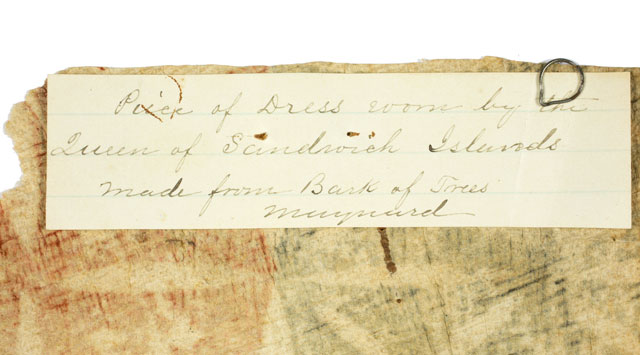 Peice of Dress worn by the
Queen of Sandwich Islands
made from Bark of Trees
Maynard